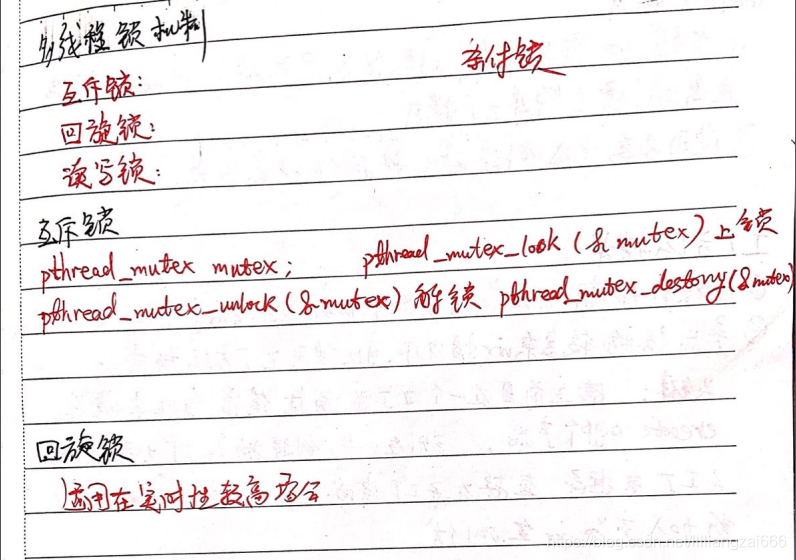 多线程锁机制
互斥锁: 条件锁
回旋锁:
读写锁:
互斥锁
pthread_mutex mutex; pthread_mutex_look (& mutex) 上锁
pthread_mutex_unlock (& mutex) 解锁 pthread_mutex_destory (& mutex)
回旋锁
适用在实时性较高场合